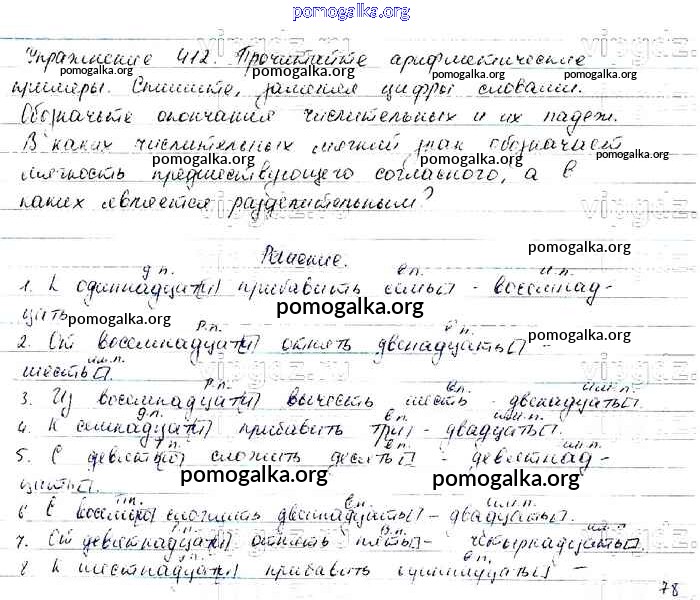 pomogalka.org
Упражнение 412. Прочитайте арифметические
pomogalka.org pomogalka.org pomogalka.org
примеры. Спишите, заменяя цифры словами.
Обозначьте окончания числительных и их падеж.
В каких числительных мягкий знак обозначает
pomogalka.org pomogalka.org
мягкость предшествующего согласного, а в
каких является разделительным?
Решение. pomogalka.org
д.п. в.п. и.п.
1. К одиннадцати прибавить семь - восемнад-
цать.
pomogalka.org pomogalka.org pomogalka.org
Р.п. в.п.
2. От восемнадцати отнять двенадцать -
шесть. им.п.
pomogalka.org
р.п. в.п. им.п.
3. Из восемнадцати вычесть шесть - двенадцать.
д.п. в.п. им.п.
4. К семнадцати прибавить три - двадцать.
pomogalka.org pomogalka.org
в.п. им.п.
5. С девятью сложить десять - девятнад-
цать.
pomogalka.org pomogalka.org
в.п. им.п.
6 С восемью сложить двенадцать - двадцать.
им.п.
7. От девятнадцати отнять пять - четырнадцать.
в.п.
8 К шестнадцати прибавить одиннадцать -
78